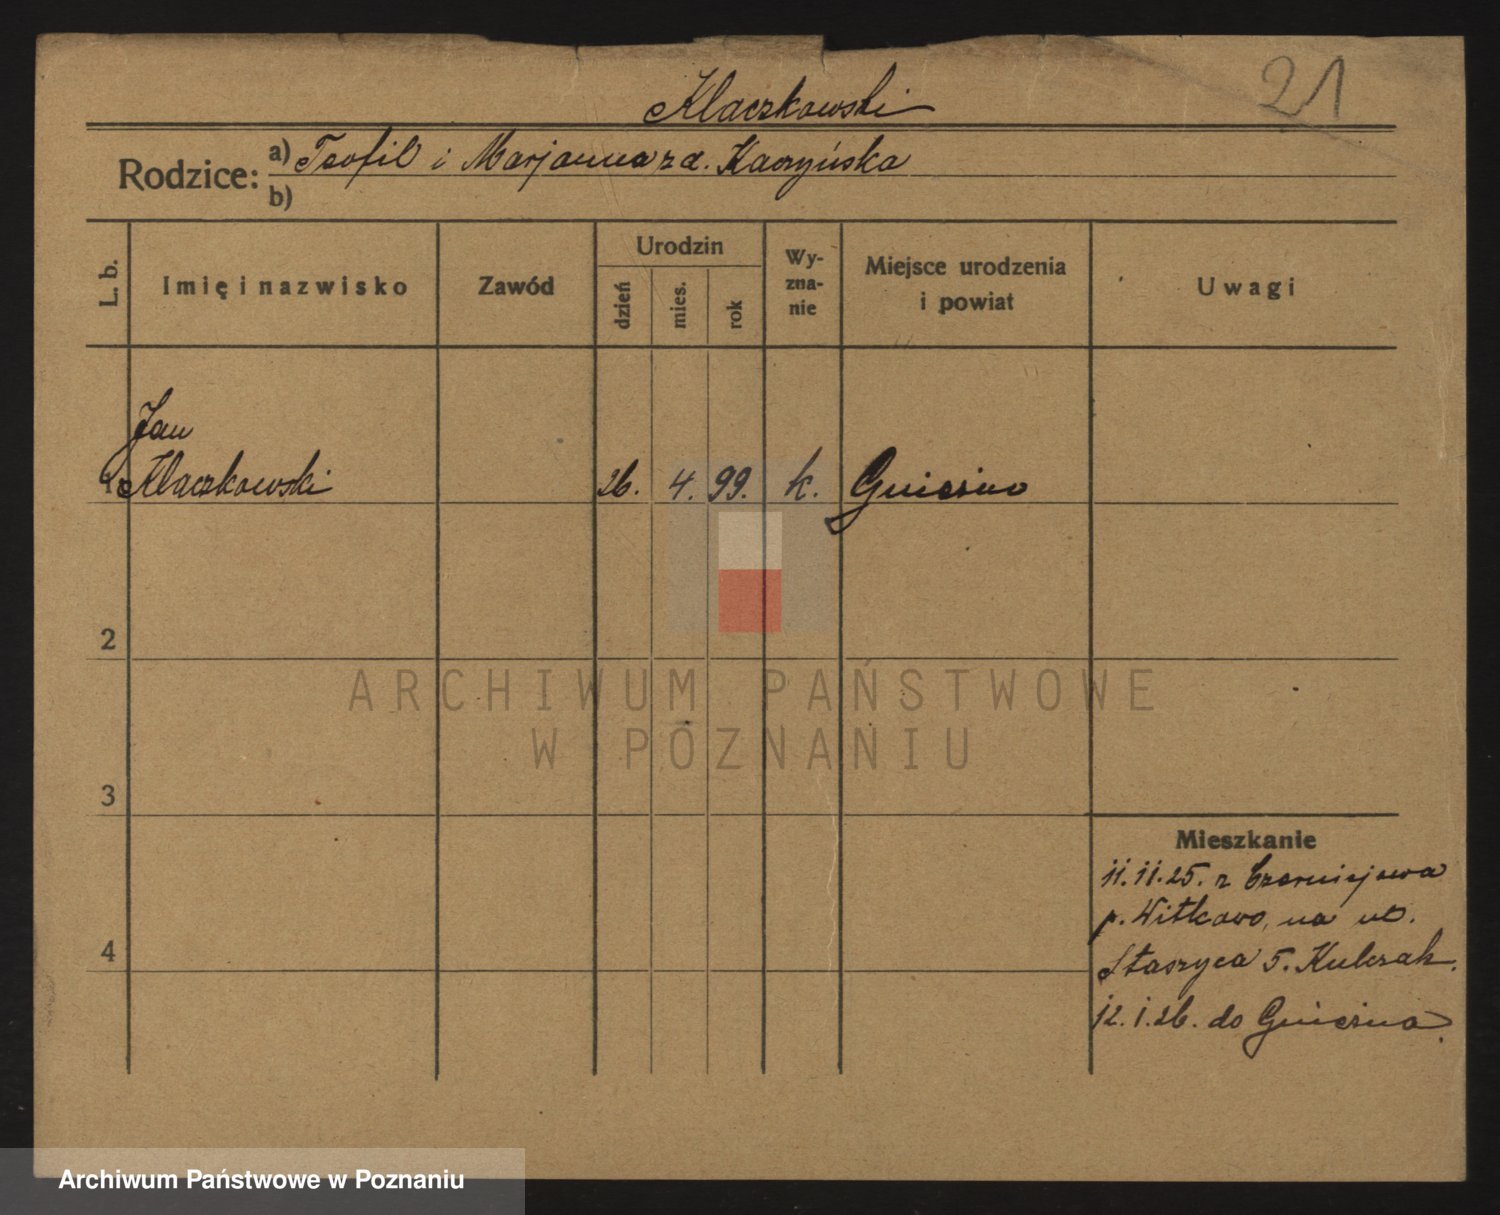 21
Klaczkowski
Rodzice: a) Teofil i Marjanna z d. Kaczyńska
b)
L. b. Imię i nazwisko Zawód Urodzin dzień mies. rok Wyznanie Miejsce urodzenia i powiat Uwagi
Jan
1 Klaczkowski 26. 4. 99. k. Gniezno
2
ARCHIWUM PAŃSTWOWE
W POZNANIU
3
Mieszkanie
11.11.25. z Czerniejewa
p. Witkowo, na ul.
4
Staszyca 5. Kulczak.
12.1.26. do Gniezna.
Archiwum Państwowe w Poznaniu